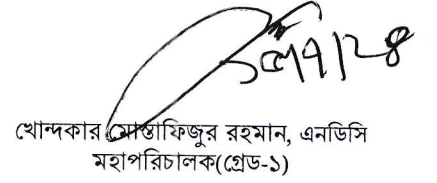 খোন্দকার মোস্তাফিজুর রহমান, এনডিসি
মহাপরিচালক(গ্রেড-১)